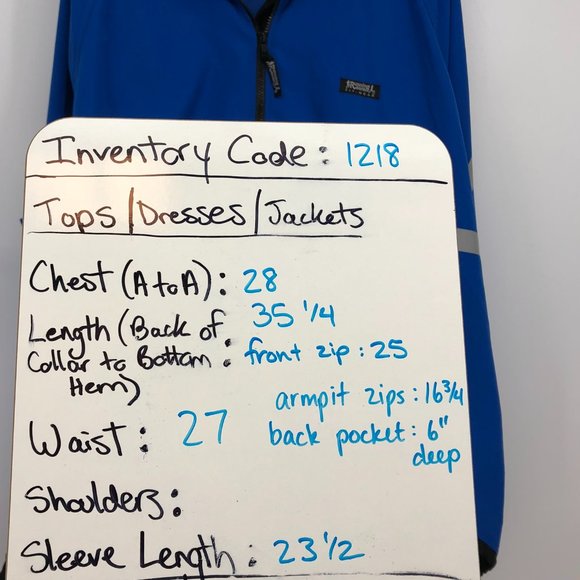 Inventory Code: 1218
Tops/Dresses/Jackets
Chest (A to A): 28
Length (Back of Collar to Bottom Hem): 35 1/4
front zip: 25
armpit zips: 16 3/4
Waist: 27
back pocket: 6" deep
Shoulders:
Sleeve Length: 23 1/2